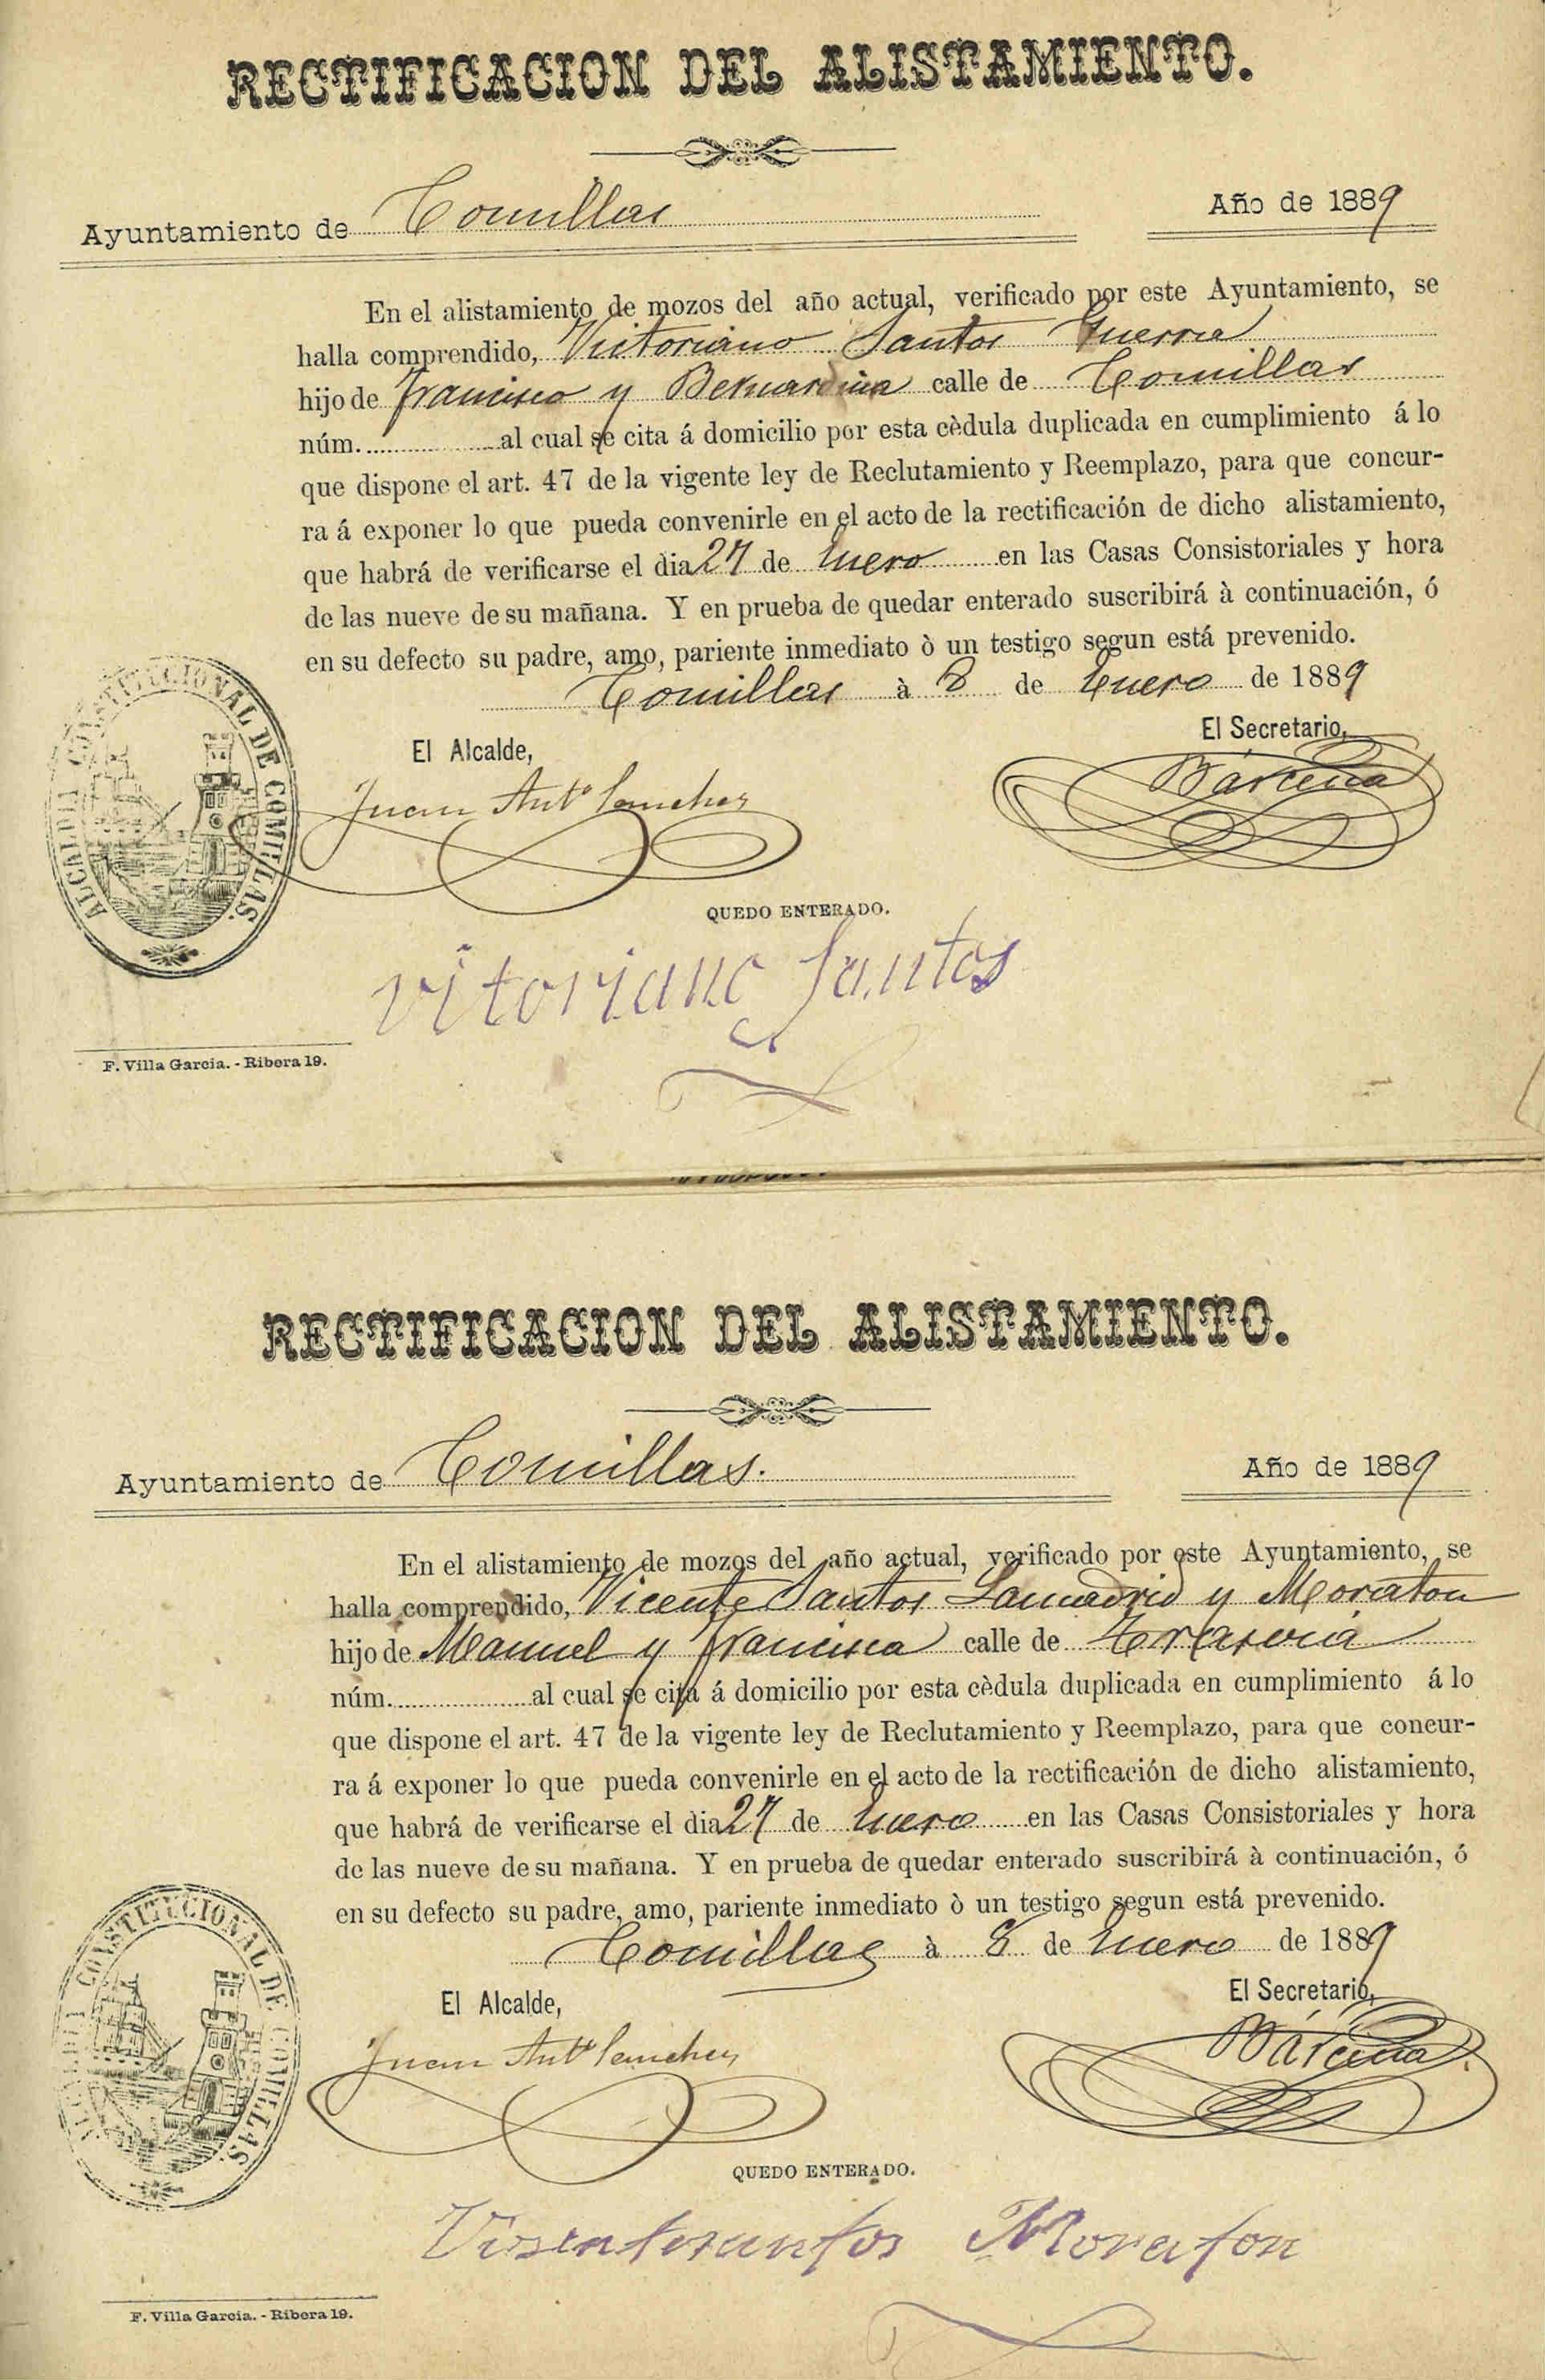 RECTIFICACION DEL ALISTAMIENTO.
Ayuntamiento de Comillas
Año de 1889
En el alistamiento de mozos del año actual, verificado por este Ayuntamiento, se
halla comprendido, Victoriano Santos Guerra
hijo de Francisco y Bernardina calle de Comillas
núm. al cual se cita á domicilio por esta cèdula duplicada en cumplimiento á lo
que dispone el art. 47 de la vigente ley de Reclutamiento y Reemplazo, para que concur-
ra á exponer lo que pueda convenirle en el acto de la rectificación de dicho alistamiento,
que habrá de verificarse el dia 27 de Enero en las Casas Consistoriales y hora
de las nueve de su mañana. Y en prueba de quedar enterado suscribirá à continuación, ó
en su defecto su padre, amo, pariente inmediato ò un testigo segun está prevenido.
Comillas à 8 de Enero de 1889
El Alcalde,
El Secretario,
Juan Antº Sanchez
Bárcena
ALCALDIA CONSTITUCIONAL DE COMILLAS.
QUEDO ENTERADO.
vitoriano Santos
F. Villa Garcia. - Ribera 19.
RECTIFICACION DEL ALISTAMIENTO.
Ayuntamiento de Comillas.
Año de 1889
En el alistamiento de mozos del año actual, verificado por este Ayuntamiento, se
halla comprendido, Vicente Santos Lamadrid y Moraton
hijo de Manuel y Francisca calle de
núm. al cual se cita á domicilio por esta cèdula duplicada en cumplimiento á lo
que dispone el art. 47 de la vigente ley de Reclutamiento y Reemplazo, para que concur-
ra á exponer lo que pueda convenirle en el acto de la rectificación de dicho alistamiento,
que habrá de verificarse el dia 27 de Enero en las Casas Consistoriales y hora
de las nueve de su mañana. Y en prueba de quedar enterado suscribirá à continuación, ó
en su defecto su padre, amo, pariente inmediato ò un testigo segun está prevenido.
Comillas à 8 de Enero de 1889
El Alcalde,
El Secretario,
Juan Antº Sanchez
Bárcena
ALCALDIA CONSTITUCIONAL DE COMILLAS.
QUEDO ENTERADO.
Visentesantos Moraton
F. Villa Garcia. - Ribera 19.